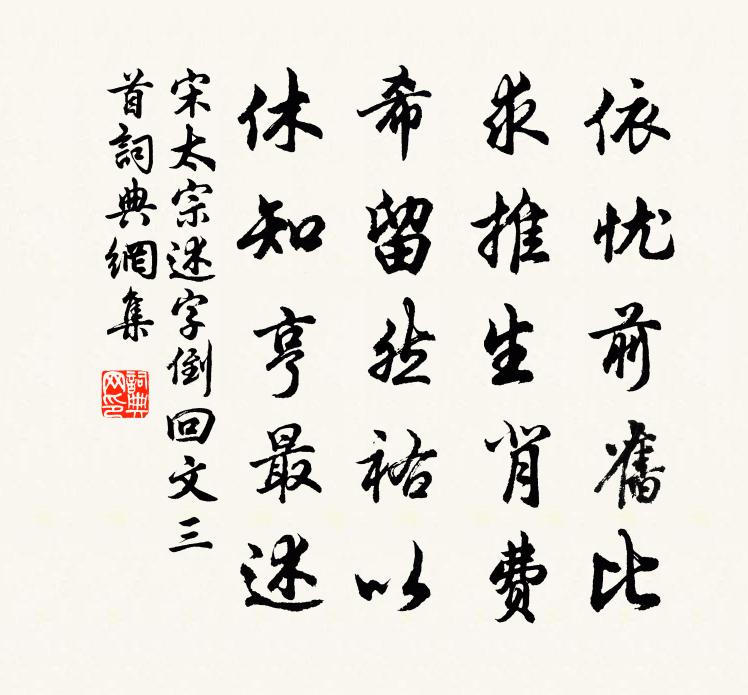 依忱前旧比
求推生肖费
希留然裕以
休知亨最述
宋太宗述字倒回文三
首詞典網集
詞典网印